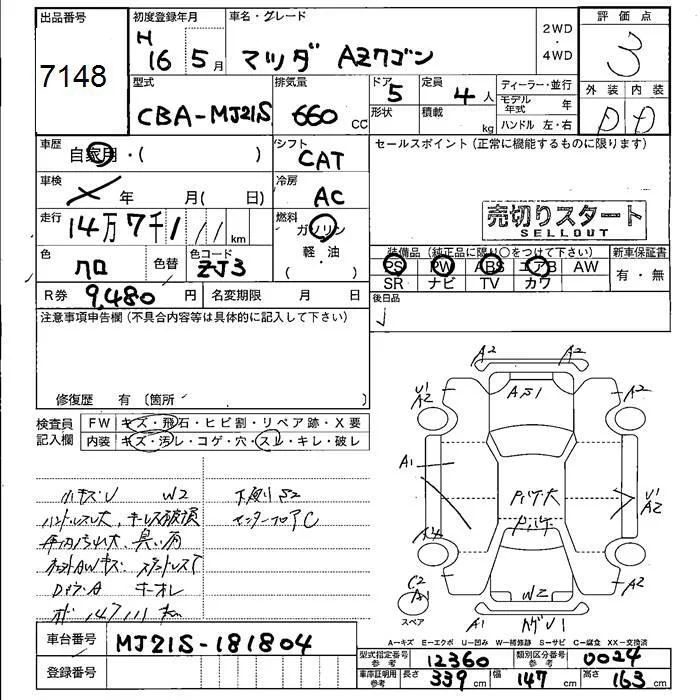 出品番号
7148
初度登録年月
H
16 5月
車名・グレード
マツダ AZワゴン
2WD
・
4WD
評価点
3
型式
CBA-MJ21S
排気量
660 CC
ドア
5
形状
定員
4人
積載
kg
ディーラー・並行
モデル年式 年
ハンドル 左・右
外装 内装
D D
車歴
自家用・( )
シフト
CAT
セールスポイント(正常に機能するものに限ります)
車検
年 月( 日)
冷房
AC
売切りスタート
SELLOUT
走行
14万7千111km
燃料
ガソリン
軽・油
( )
色
クロ
色替
色コード
ZJ3
装備品(純正品に限り○をつけて下さい)
PS PW ABS エアB AW
SR ナビ TV カワ
新車保証書
有・無
R券 9,480円
名変期限 月 日
後日品
注意事項申告欄(不具合内容等は具体的に記入して下さい)
修復歴 有〔箇所
検査員
記入欄
FW キズ・飛石・ヒビ割・リペア跡・X要
内装 キズ・汚レ・コゲ・穴・スレ・キレ・破レ
小キズU W2
下廻り S2
ハンドルスレ大、キーレス破損
インターフロアC
車内汚れ大、臭い有
オド 147111km
A2 A2
U1
A2
AS1
A2
A1
U1
A2
C2
A1
スペア
W2
A1
A2
A-キズ E-エクボ U-凹み W-補修跡 S-サビ C-腐食 XX-交換済
車台番号
MJ21S-181804
登録番号
型式指定番号
参考
12360
類別区分番号
参考
0024
車庫証明用
参考
長さ 339cm
幅 147cm
高さ 163cm